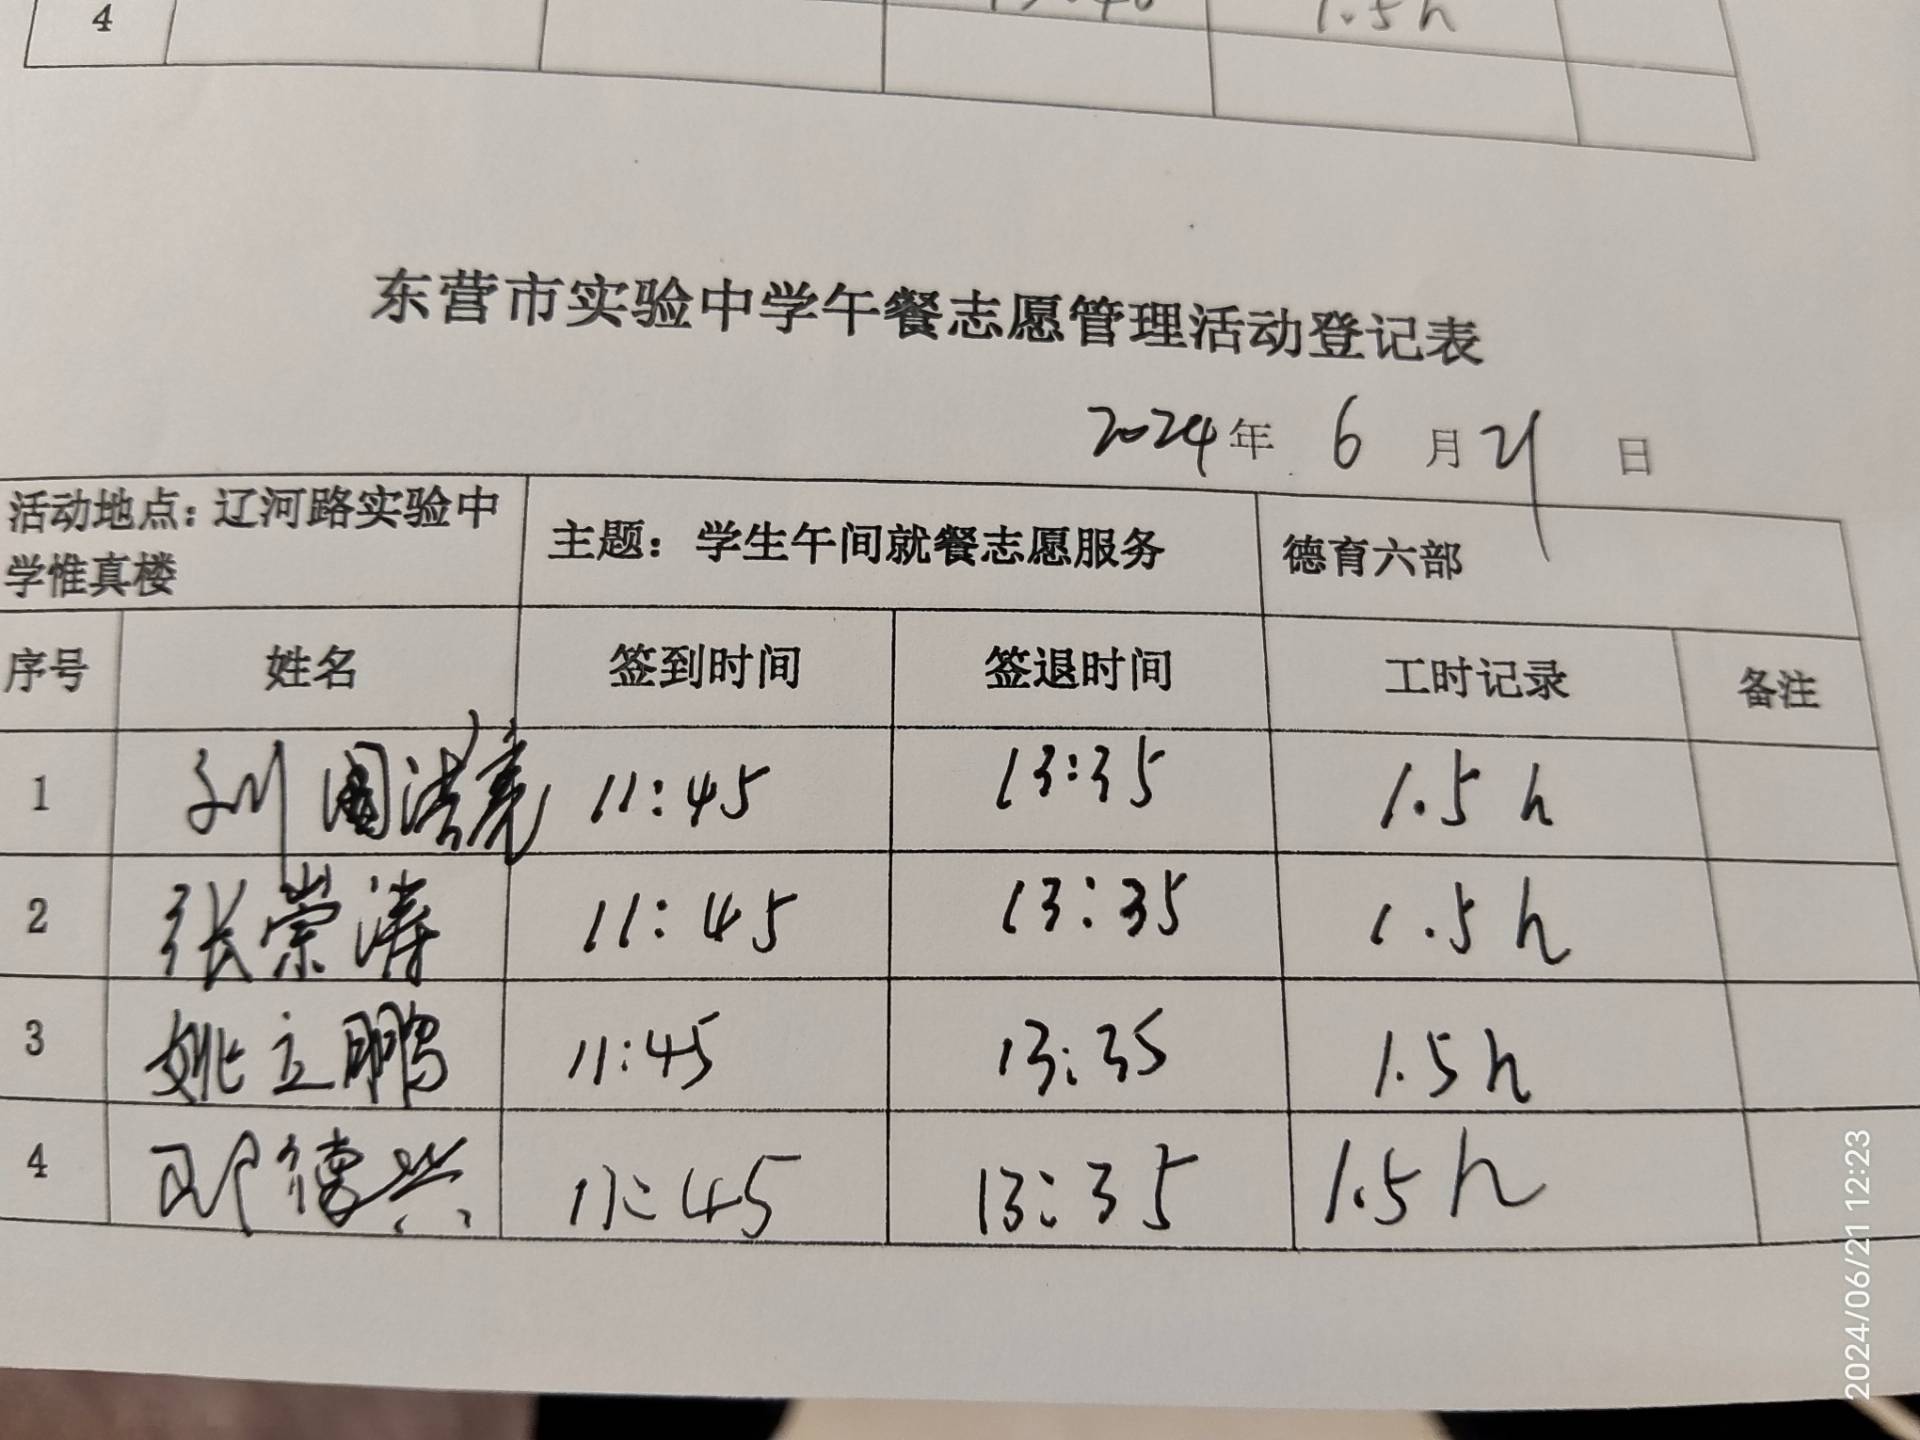 4 1.5h
东营市实验中学午餐志愿管理活动登记表
2024年 6 月 21 日
活动地点：辽河路实验中
学惟真楼
主题：学生午间就餐志愿服务
德育六部
序号 姓名 签到时间 签退时间 工时记录 备注
1 11:45 13:35 1.5h
2 张崇涛 11:45 13:35 1.5h
3 姚立鹏 11:45 13:35 1.5h
4 邓德兴 11:45 13:35 1.5h
2024/06/21 12:23